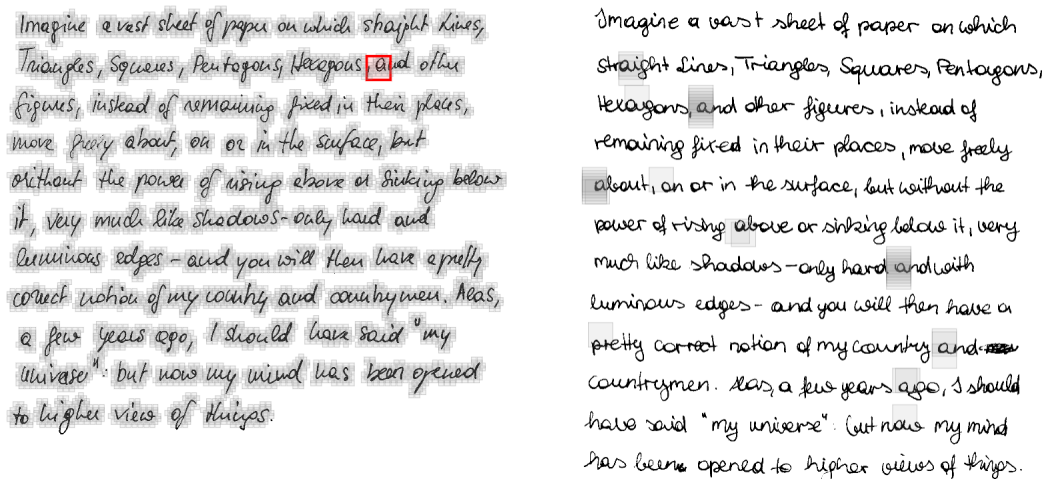 Imagine a vast sheet of paper on which straight Lines,
Triangles, Squares, Pentagons, Hexagons, and other
figures, instead of remaining fixed in their places,
move freely about, on or in the surface, but
without the power of rising above or sinking below
it, very much like shadows - only hard and
luminous edges - and you will then have a pretty
correct notion of my country and countrymen. Alas,
a few years ago, I should have said "my
universe": but now my mind has been opened
to higher view of things.
Imagine a vast sheet of paper on which
straight Lines, Triangles, Squares, Pentagons,
Hexagons, and other figures, instead of
remaining fixed in their places, move freely
about, on or in the surface, but without the
power of rising above or sinking below it, very
much like shadows - only hard and with
luminous edges - and you will then have a
pretty correct notion of my country and
countrymen. Alas, a few years ago, I should
have said "my universe": but now my mind
has been opened to higher views of things.